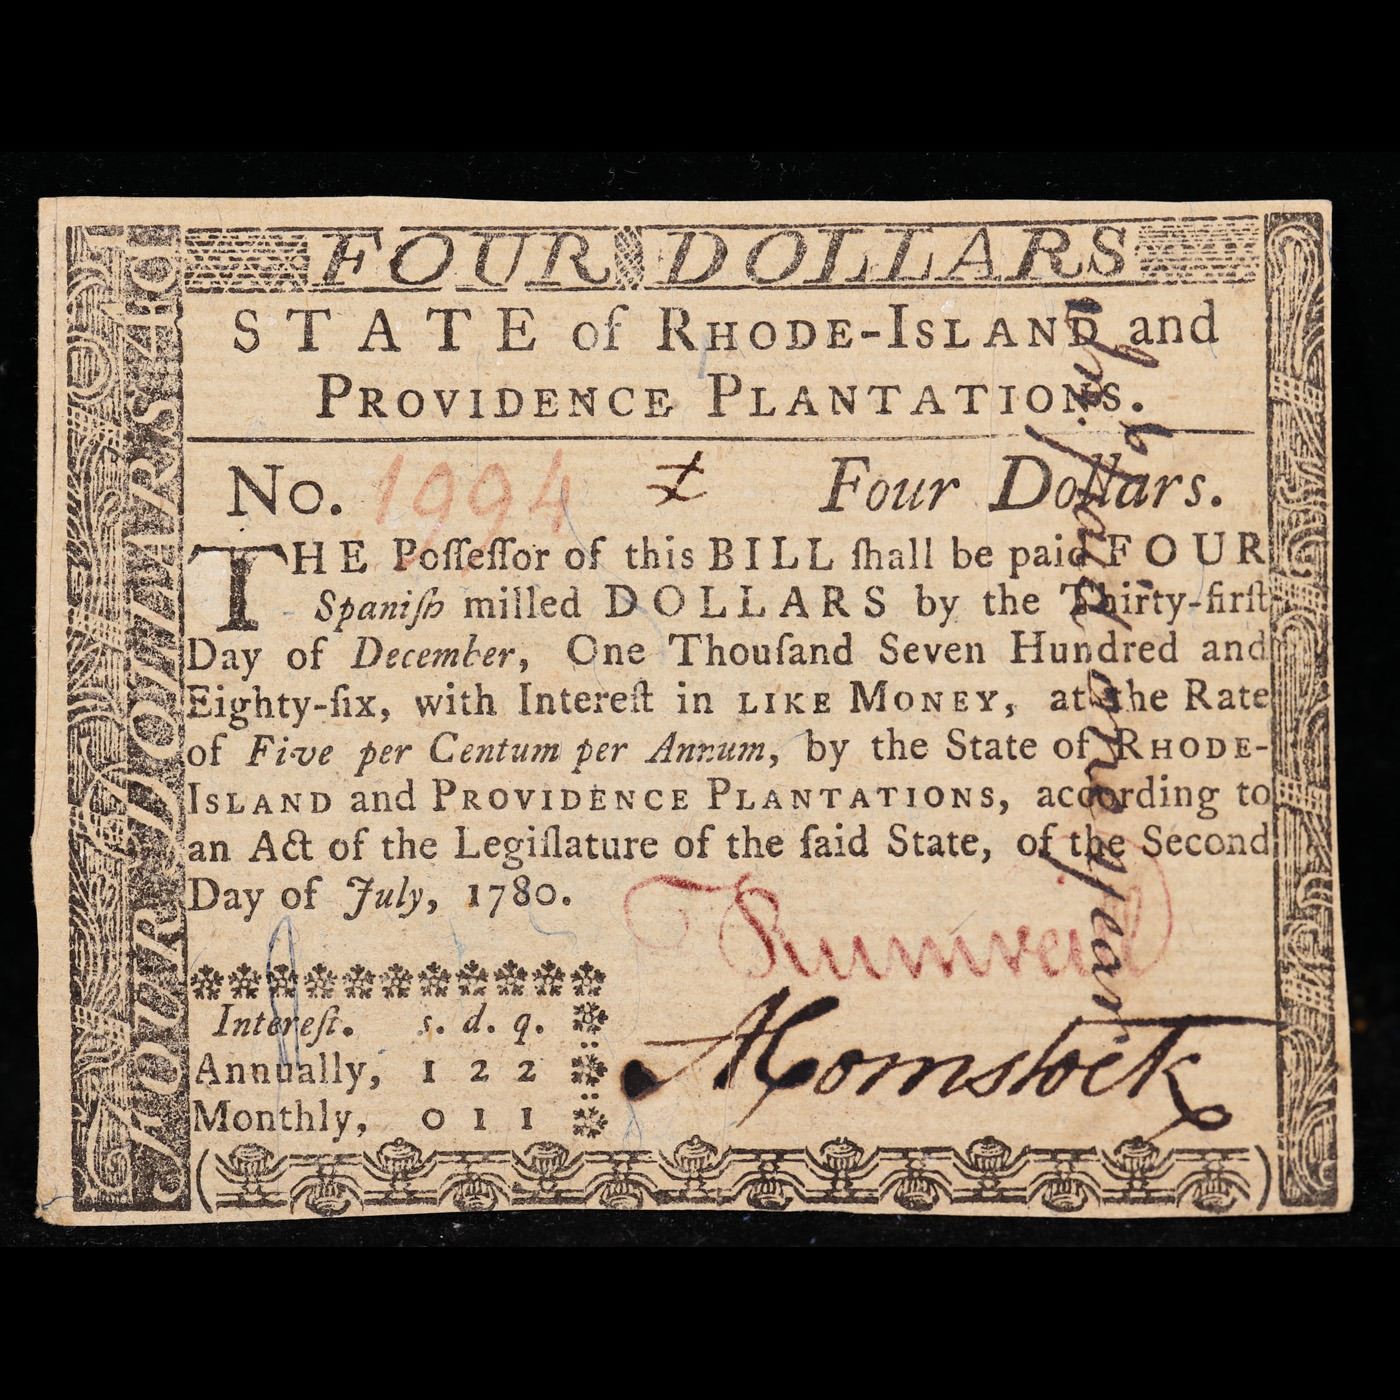 FOUR DOLLARS
STATE of RHODE-ISLAND and
PROVIDENCE PLANTATIONS.
No. 1994 Four Dollars.
THE Poſſeſſor of this BILL ſhall be paid FOUR
Spaniſh milled DOLLARS by the Thirty-firſt
Day of December, One Thouſand Seven Hundred and
Eighty-ſix, with Intereſt in LIKE MONEY, at the Rate
of Five per Centum per Annum, by the State of RHODE-
ISLAND and PROVIDENCE PLANTATIONS, according to
an Act of the Legiſlature of the ſaid State, of the Second
Day of July, 1780.
Intereſt. s. d. q.
Annually, 1 2 2
Monthly, 0 1 1
A Comstock
FOUR DOLLARS
Int paid one year